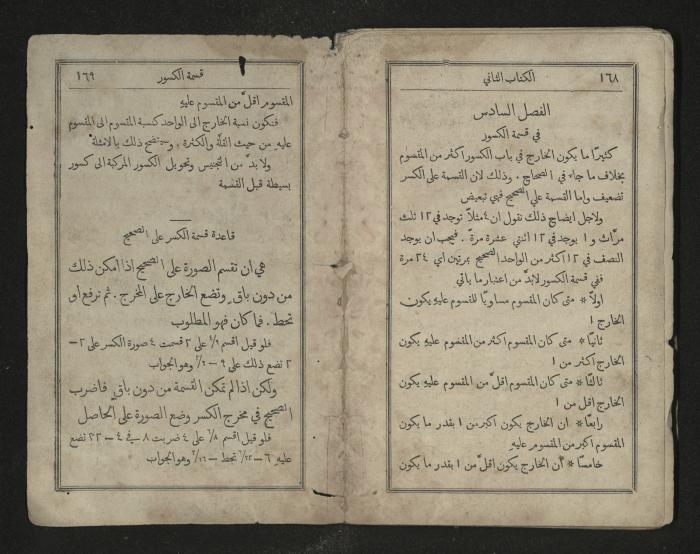 ١٦٨ الكتاب الثاني
الفصل السادس
في قسمة الكسور
كثيرًا ما يكون الخارج في باب الكسور اكثر من المقسوم
بخلاف ما جاء في الصحاح . وذلك لان القسمة على الكسر
تضعيف واما القسمة على الصحيح فهي تبعيض
ولاجل ايضاح ذلك نقول ان ٤ مثلاً توجد في ١٢ ثلث
مرّات و ١ يوجد في ١٢ اثنتي عشرة مرة . فيجب ان يوجد
النصف في ١٢ اكثر من الواحد الصحيح بمرتين اي ٢٤ مرة
ففي قسمة الكسور لابدّ من اعتبار ما ياتي
اولاً * متى كان المقسوم مساويًا للمقسوم عليه يكون
الخارج ١
ثانيًا * متى كان المقسوم اكثر من المقسوم عليه يكون
الخارج اكثر من ١
ثالثًا * متى كان المقسوم اقلّ من المقسوم عليه يكون
الخارج اقل من ١
رابعًا * ان الخارج يكون اكبر من ١ بقدر ما يكون
المقسوم اكبر من المقسوم عليه
خامسًا * ان الخارج يكون اقلّ من ١ بقدر ما يكون
قسمة الكسور ١٦٩
المقسوم اقلّ من المقسوم عليه
فتكون نسبة الخارج الى الواحد كنسبة المقسوم الى المقسوم
عليه من حيث القلّة والكثرة . وسيتضح ذلك بالامثلة
ولا بدّ من التجنيس وتحويل الكسور المركبة الى كسور
بسيطة قبل القسمة
قاعدة قسمة الكسر على الصحيح
هي ان تقسم الصورة على الصحيح اذا امكن ذلك
من دون باقٍ وتضع الخارج على المخرج . ثم ترفع او
تحط . فما كان فهو المطلوب
فلو قيل اقسم على ٢ قسمت ٤ صورة الكسر على ٢ –
٢ تضع ذلك على ٩ – ٢/٩ وهو الجواب
ولكن اذا لم تمكن القسمة من دون باقٍ فاضرب
الصحيح في مخرج الكسر وضع الصورة على الحاصل
فلو قيل اقسم على ٤ ضربت ٨ في ٤ – ٣٢ تضع
عليه ٦ – تحط – وهو الجواب